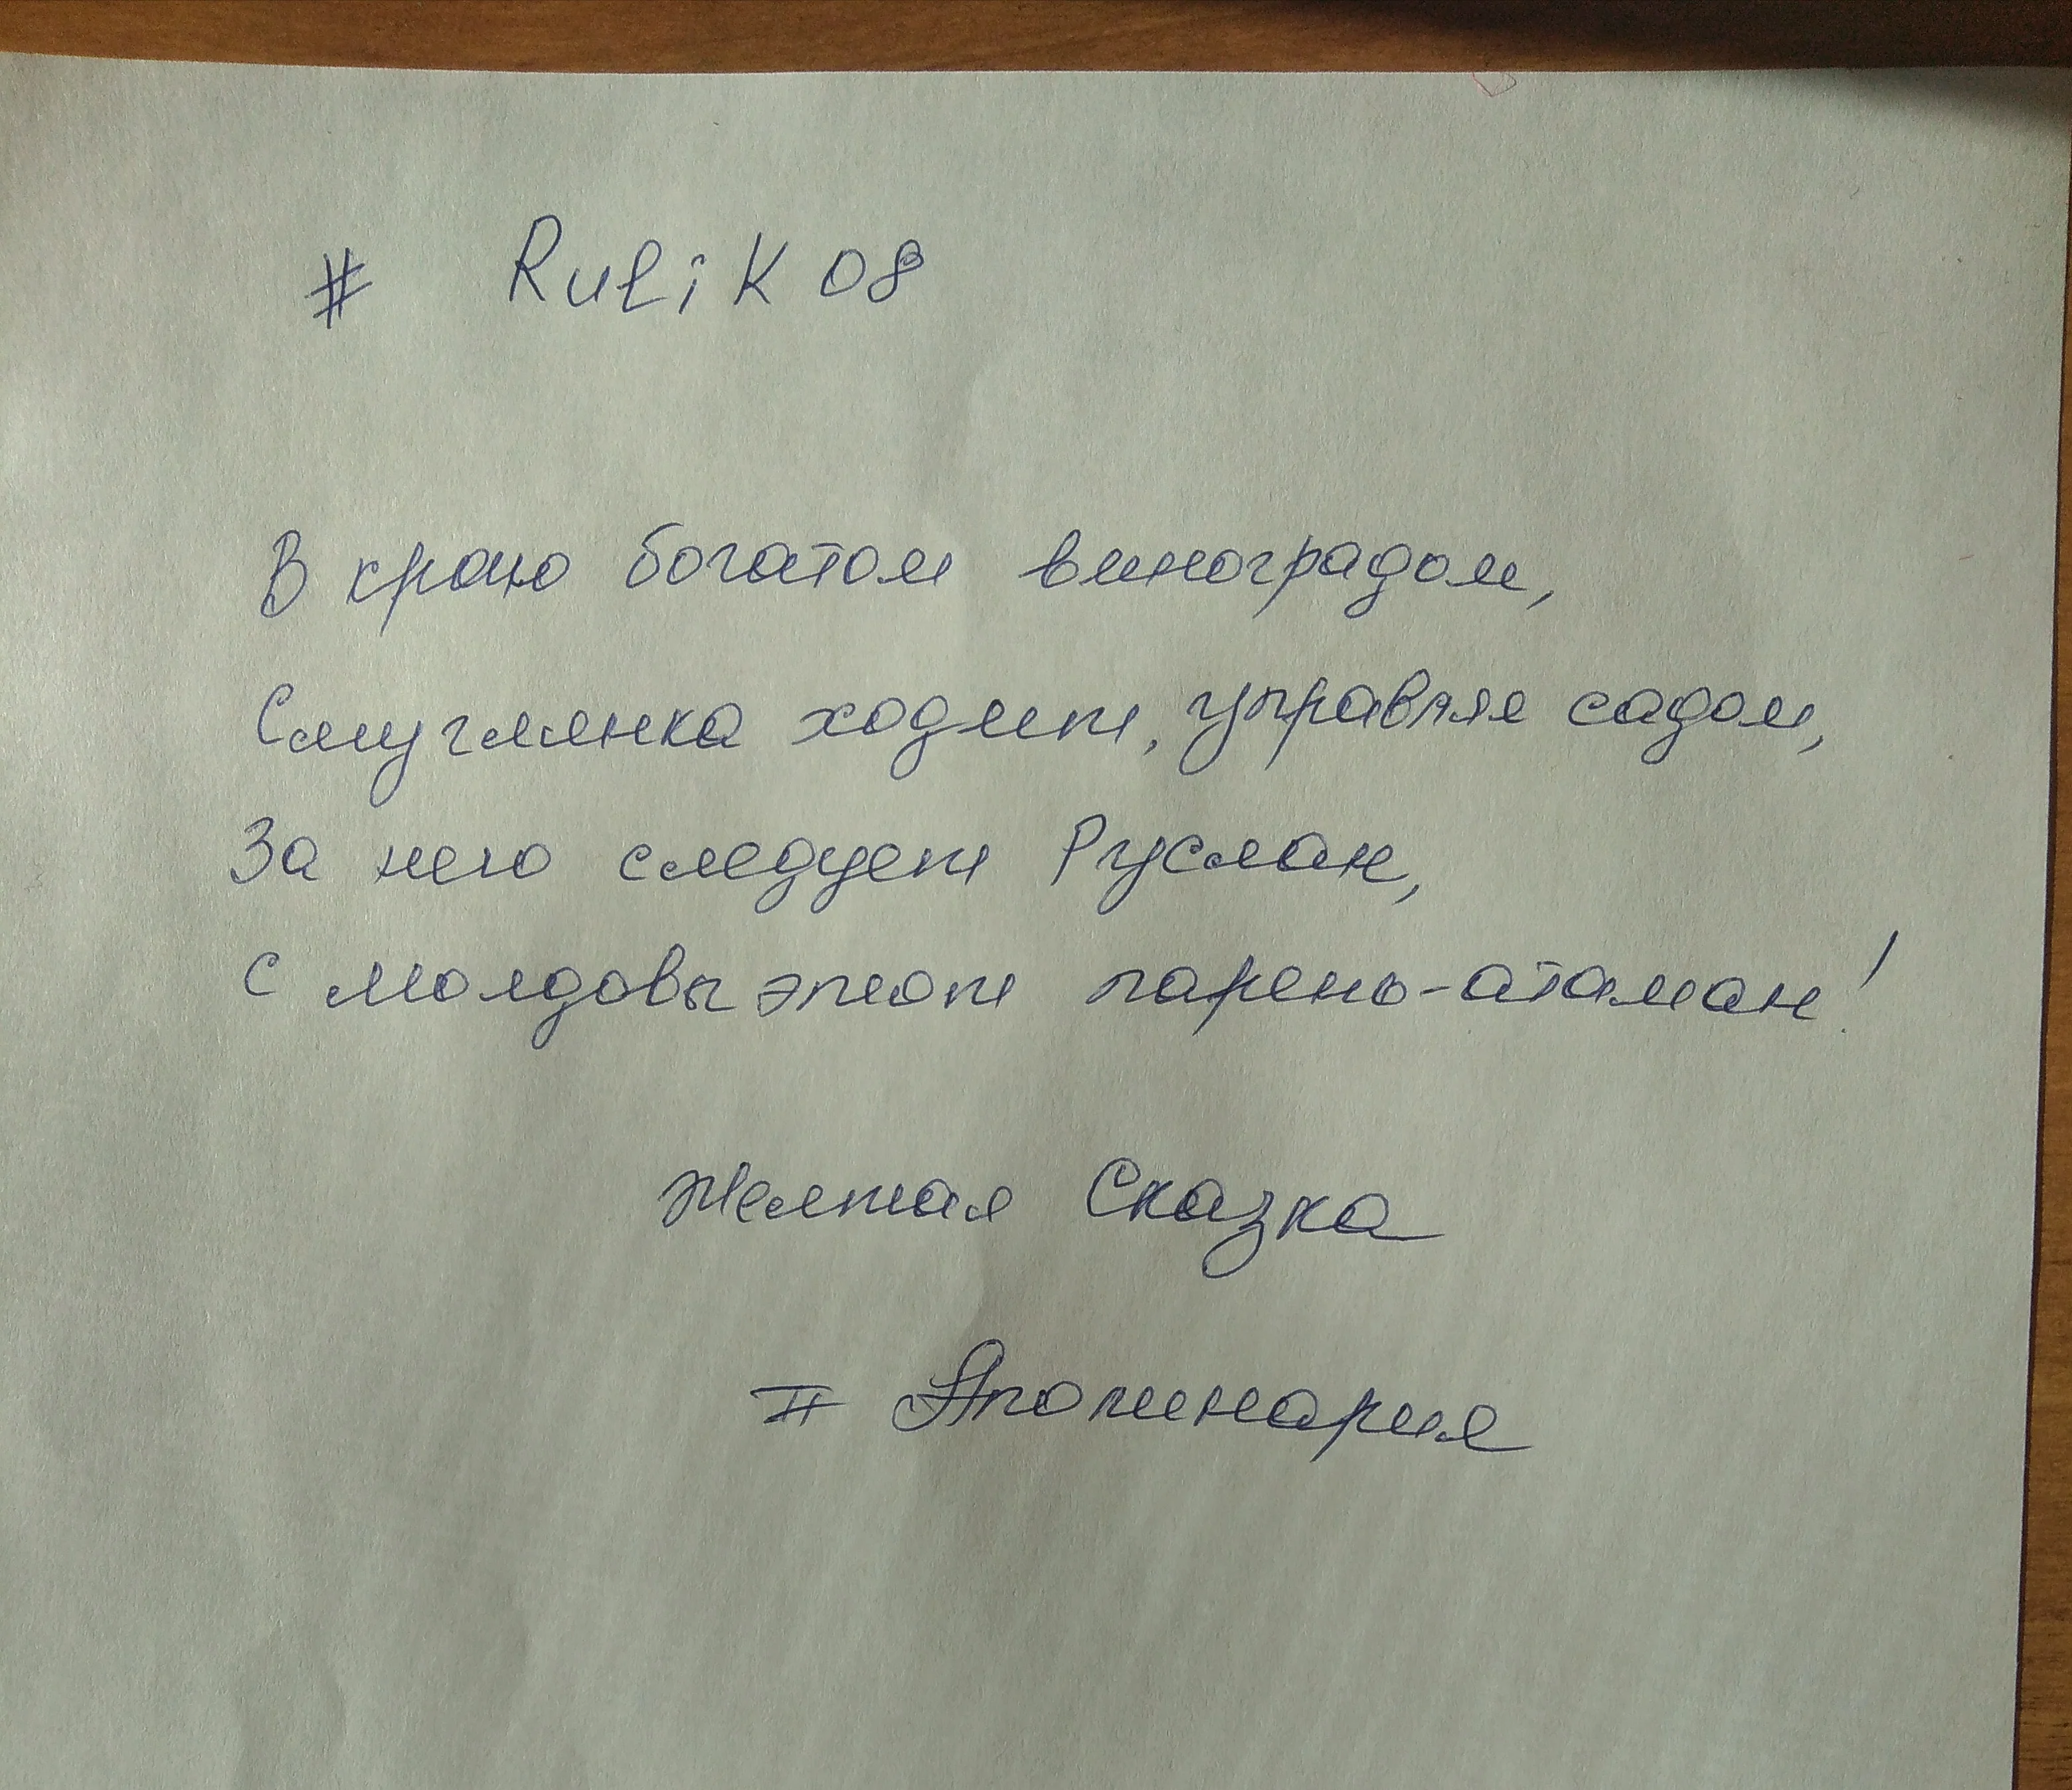 # Rulik 08
В краю богатом виноградом,
Смуглянка ходит, управляя садом,
За нею следует Руслан,
С Молдовы этот парень-атаман!
Желтая Сказка
II Аполинария